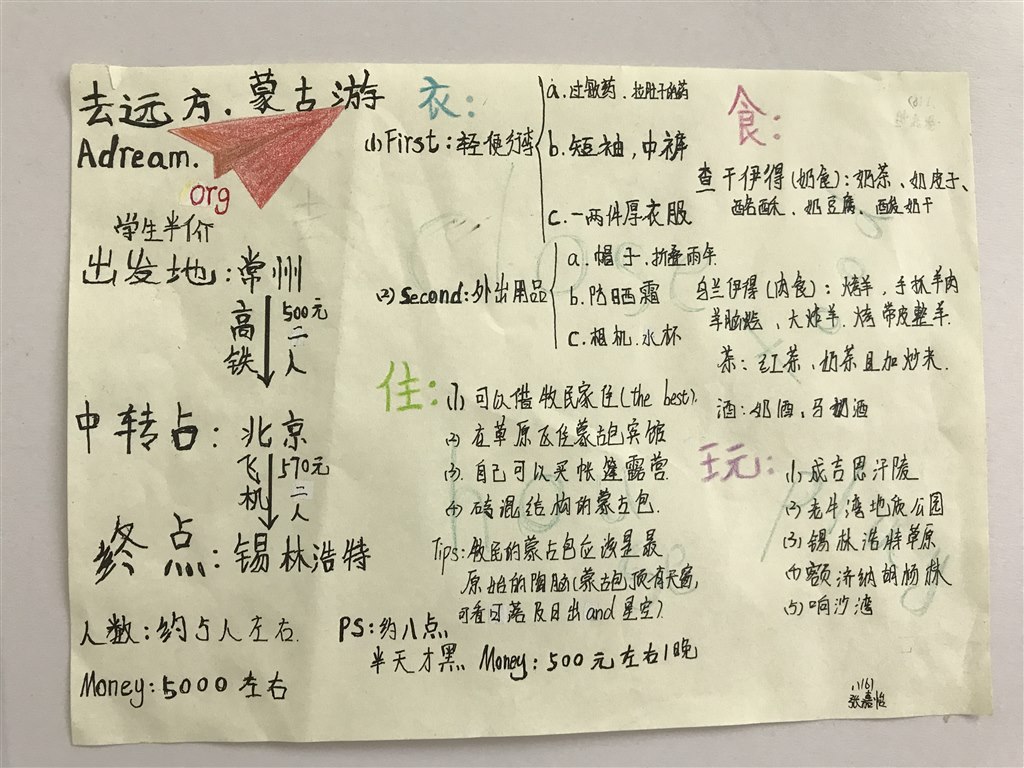 去远方.蒙古游
Adream.
org
学生半价
出发地:常州
高铁
500元
二人
中转占:北京
飞机
570元
二人
终点:锡林浩特
人数:约5人左右.
Money:5000左右
衣:
(1)First:轻便行李
a.过敏药、拉肚子的药
b.短袖,中裤
c.一两件厚衣服
(2)Second:外出用品
a.帽子、折叠雨伞
b.防晒霜
c.相机、水杯
住:
(1)可以借牧民家住(the best).
(2)在草原区住蒙古包宾馆
(3)自己可以买帐篷露营.
(4)砖混结构的蒙古包.
Tips:牧民的蒙古包应该是最
原始的陶脑(蒙古包顶有天窗,
可看日落及日出and星空).
PS:约八点
半天才黑 Money:500元左右1晚
食:
查干伊得(奶食):奶茶、奶皮子、
酪酥、奶豆腐、酸奶干
乌兰伊得(肉食):烤羊,手抓羊肉
大炸羊.烤带皮整羊.
茶:红茶、奶茶且加炒米.
酒:奶酒、马奶酒
玩:
(1)成吉思汗陵
(2)老牛湾地质公园
(3)锡林浩特草原
(4)额济纳胡杨林
(5)响沙湾
1(6)
张嘉怡